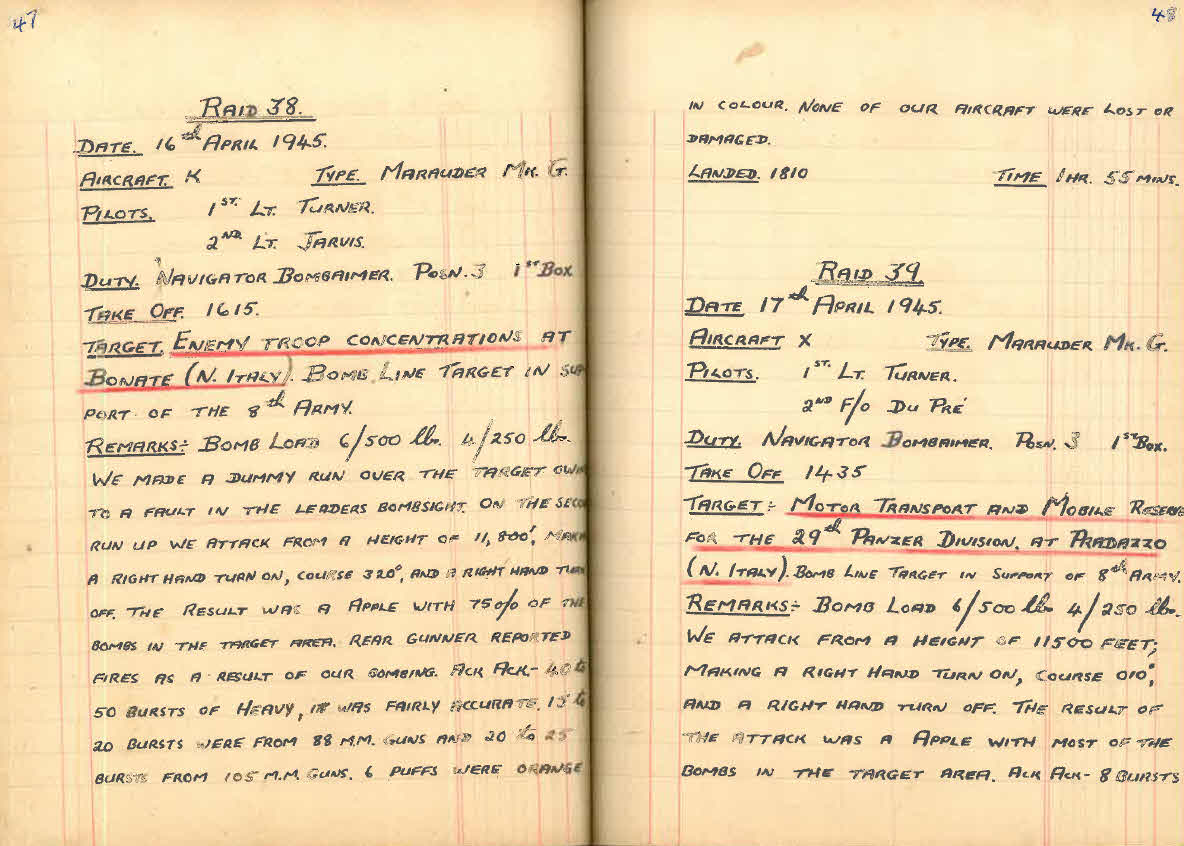 47
RAID 38.
DATE. 16th APRIL 1945.
AIRCRAFT. K TYPE. MARAUDER MK. G.
PILOTS. 1ST. LT. TURNER.
2ND LT. JARVIS.
DUTY. NAVIGATOR BOMBAIMER. POSN. 3 1ST BOX
TAKE OFF. 1615.
TARGET. ENEMY TROOP CONCENTRATIONS AT
BONATE (N. ITALY). BOMB LINE TARGET IN SUP
PORT OF THE 8th ARMY.
REMARKS:- BOMB LOAD 6/500 lbs. 4/250 lbs.
WE MADE A DUMMY RUN OVER THE TARGET OWIN
TO A FAULT IN THE LEADERS BOMBSIGHT. ON THE SECON
RUN UP WE ATTACK FROM A HEIGHT OF 11,800', MAKIN
A RIGHT HAND TURN ON, COURSE 320°, AND A RIGHT HAND TURN
OFF. THE RESULT WAS A APPLE WITH 75 o/o OF THE
BOMBS IN THE TARGET AREA. REAR GUNNER REPORTED
FIRES AS A RESULT OF OUR BOMBING. ACK ACK- 40 to
50 BURSTS OF HEAVY, IT WAS FAIRLY ACCURATE. 15 to
20 BURSTS WERE FROM 88 M.M. GUNS AND 20 to 25
BURSTS FROM 105 M.M. GUNS. 6 PUFFS WERE ORANGE
48
IN COLOUR. NONE OF OUR AIRCRAFT WERE LOST OR
DAMAGED.
LANDED. 1810 TIME 1 HR. 55 MINS.
RAID 39.
DATE 17th APRIL 1945.
AIRCRAFT X TYPE. MARAUDER MK. G.
PILOTS. 1ST. LT. TURNER.
2ND F/O DU PRÉ
DUTY. NAVIGATOR BOMBAIMER. POSN. 3 1ST BOX.
TAKE OFF 1435
TARGET:- MOTOR TRANSPORT AND MOBILE RESERVE
FOR THE 29th PANZER DIVISION. AT PRADAZZO
(N. ITALY). BOMB LINE TARGET IN SUPPORT OF 8th ARMY.
REMARKS:- BOMB LOAD 6/500 lbs 4/250 lbs.
WE ATTACK FROM A HEIGHT OF 11500 FEET;
MAKING A RIGHT HAND TURN ON, COURSE 010°,
AND A RIGHT HAND TURN OFF. THE RESULT OF
THE ATTACK WAS A APPLE WITH MOST OF THE
BOMBS IN THE TARGET AREA. ACK ACK- 8 BURSTS